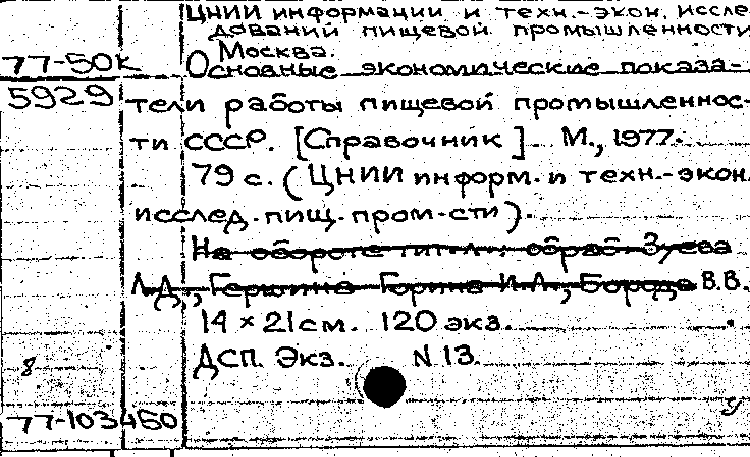 ЦНИИ информации и техн.-экон. иссле
дований пищевой промышленности
Москва.
77-50к Основные экономические показа-
5929 тели работы пищевой промышленнос-
ти СССР. [Справочник]. М., 1977.
79 с. (ЦНИИ информ. и техн.-экон.
исслед. пищ. пром-сти).
На обороте тит. л.: обраб. Зуева
Л.Д., Горина И.А., Бородс В.В.
14 × 21 см. 120 экз.
8 ДСП. Экз. N 13.
77-103460